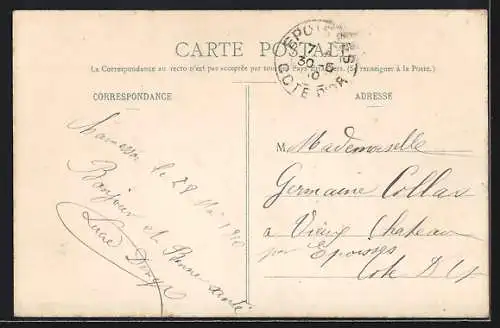 CARTE POSTALE
La Correspondance au recto n'est pas acceptée par tous les pays étrangers. (Se renseigner à la Poste.)
EPOISSES
7
30 -5
10
COTE D'OR
CORRESPONDANCE
ADRESSE
le 28 Mai 1910
Bonjour et Bonne santé
Lucie
M Mademoiselle
Germaine Collas
a Vieux Chateau
par Epoisses
Cote D'Or